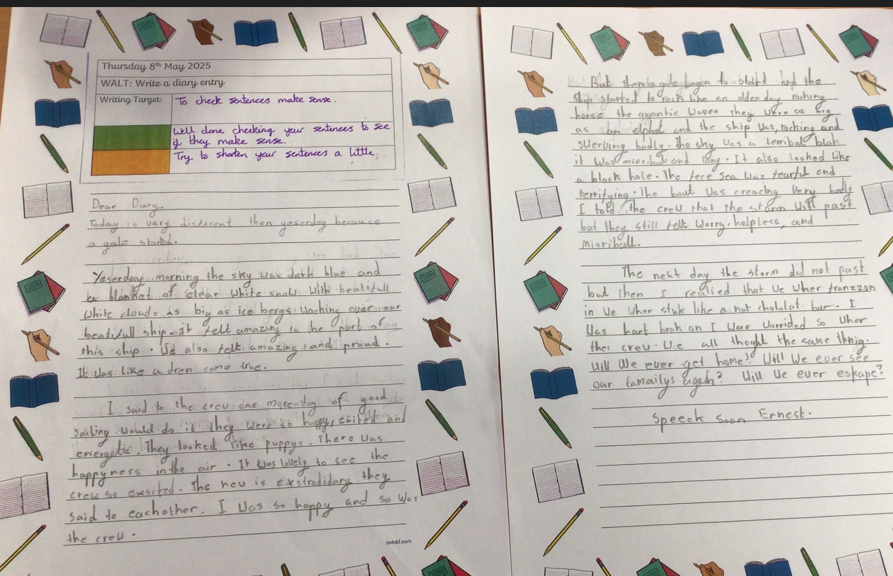 Thursday 8th May 2025
WALT: Write a diary entry
Writing Target:
To check sentences make sense.
Well done checking your sentences to see
if they make sense.
Try to shorten your sentences a little.
Dear Diary,
Today is very different then yesterday because
a gale started.
Yeserday morning the sky was dark blue and
a blanket of clear white snow. With
white clouds as big as ice bergs. over our
ship. it felt amazing to be part of
this ship. We also felt amazing and proud.
It was like a drem come true.
I said to the crew one more day of good
sailing would do it they were so happy, exited and
energetic. They looked like puppys. There was
happyness in the air. It was lovely to see the
crew so exsited. The new is they
said to eachother. I was so happy and so was
the crew.
twinkl.com
But then a gale began to and the
ship started to rock like an olden day rocking
horse the waves they were as big
as an and the ship was rocking and
swerving badly. The sky was a blot
it was and . It also looked like
a black hole. The sea was and
terrifying. The boat was very badly
I told the crew that the storm will past
but they still felt worry, helpless, and

The next day the storm did not past
but then I that we wher
in we wher stuk like a nut choholat bar. I
was I was so wher
the crew. We all thoyht the same thnig.
Will we ever get home? Will we ever see
our again? Will we ever eskape?
Speeck Soon Ernest.